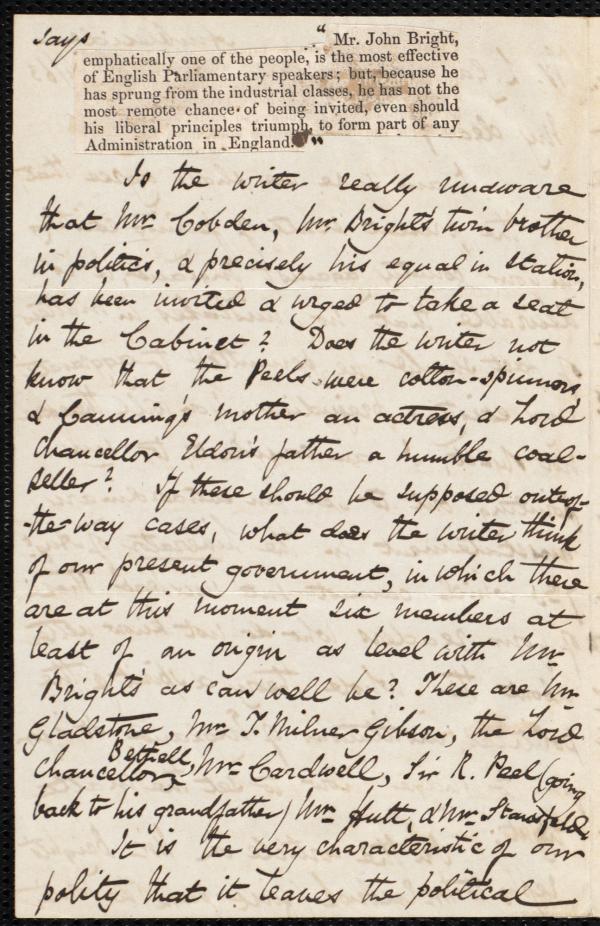 says
" Mr. John Bright,
emphatically one of the people, is the most effective
of English Parliamentary speakers; but, because he
has sprung from the industrial classes, he has not the
most remote chance of being invited, even should
his liberal principles triumph, to form part of any
Administration in England. "
Is the writer really unaware
that Mr Cobden, Mr Bright's twin brother
in politics, & precisely his equal in station,
has been invited & urged to take a seat
in the Cabinet? Does the writer not
know that the Peels were cotton-spinners,
& Canning's mother an actress, & Lord
Chancellor Eldon's father a humble coal-
seller? If these should be supposed out-of-
-the-way cases, what does the writer think
of our present government, in which there
are at this moment six members at
least of an origin as level with Mr
Bright's as can well be? These are Mr
Gladstone, Mr T. Milner Gibson, the Lord
Chancellor, Bethell, Mr Cardwell, Sir R. Peel (going
back to his grandfather) Mr Hutt, & Mr Stansfeld.
It is the very characteristic of our
polity that it leaves the political